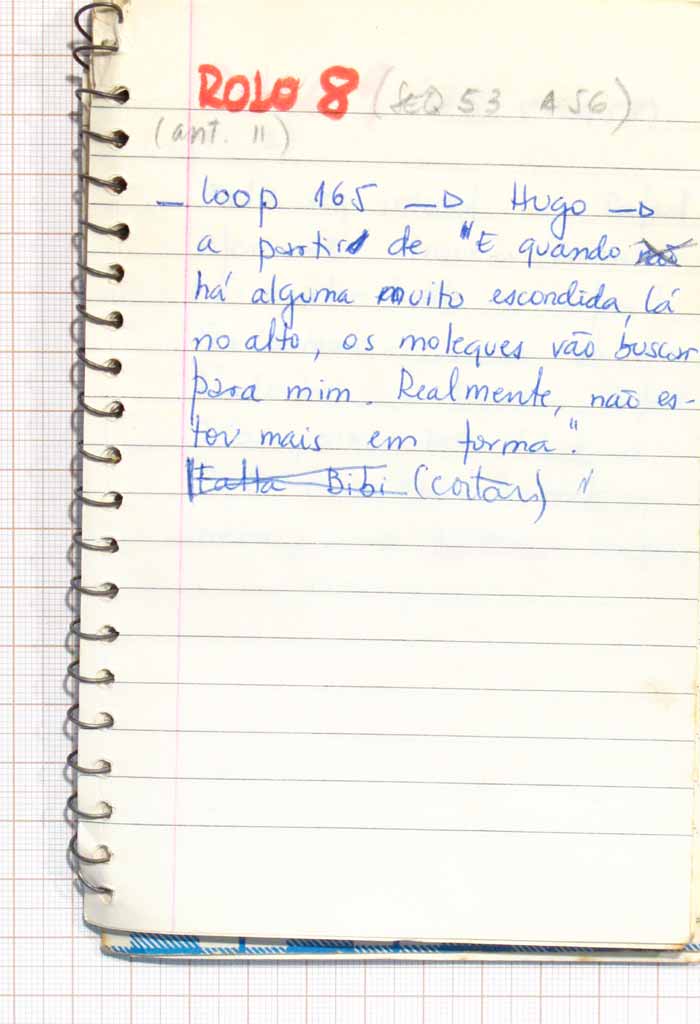 ROLO 8 (SEQ 53 A 56)
(ant. 11)
— loop 165 —▷ Hugo —▷
a partir de "E quando não
há alguma muito escondida, lá
no alto, os moleques vão buscar
para mim. Realmente, não es-
tou mais em forma".
Falta Bibi (cortar)